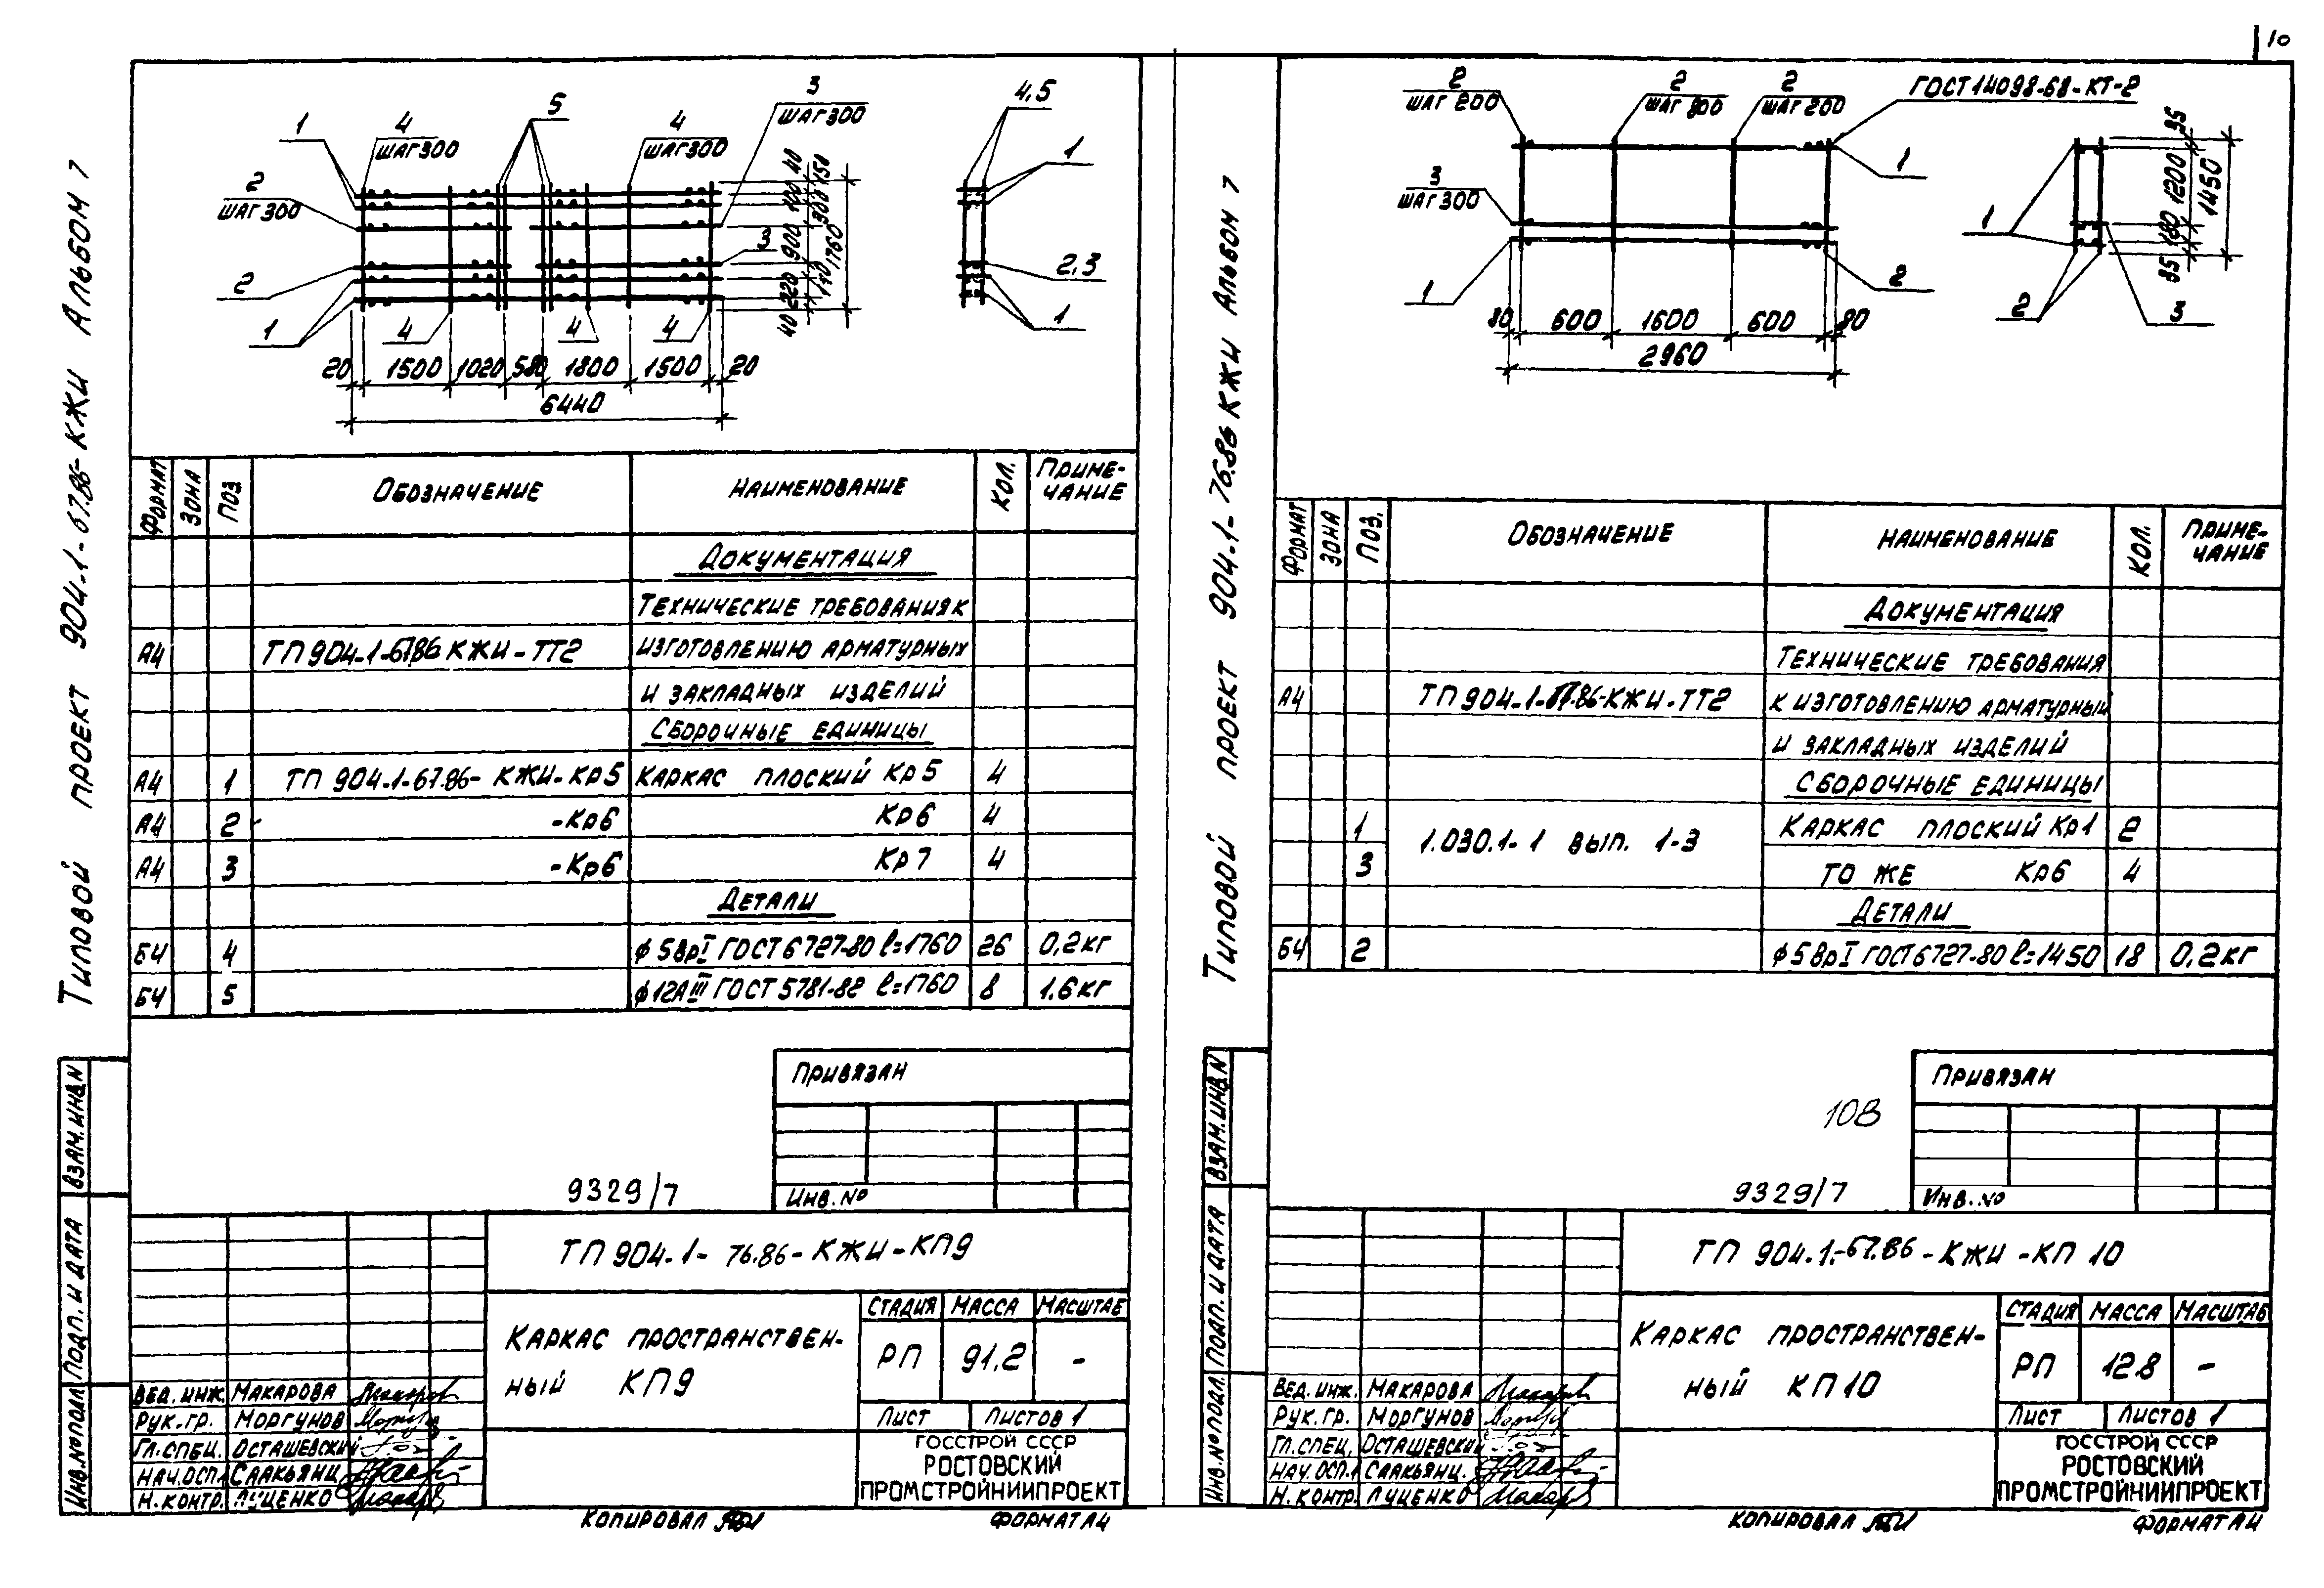 10
Типовой проект 904-1-67.86-КЖИ Альбом 7
1
4
ШАГ 300
5
4
ШАГ 300
3
ШАГ 300
4,5
1
2
ШАГ 300
2
3
2,3
1
1
4
4
4
40
100
150
300
900
1760
150
220
40
20
1500
1020
580
1800
1500
20
6440
ФОРМАТ ЗОНА ПОЗ ОБОЗНАЧЕНИЕ НАИМЕНОВАНИЕ КОЛ. ПРИМЕ-
ЧАНИЕ
ДОКУМЕНТАЦИЯ
ТЕХНИЧЕСКИЕ ТРЕБОВАНИЯ К
А4 ТП 904-1-67.86 КЖИ-ТТ2 ИЗГОТОВЛЕНИЮ АРМАТУРНЫХ
И ЗАКЛАДНЫХ ИЗДЕЛИЙ
СБОРОЧНЫЕ ЕДИНИЦЫ
А4 1 ТП 904-1-67.86- КЖИ-КР5 КАРКАС ПЛОСКИЙ КР5 4
А4 2 -КР6 КР6 4
А4 3 -КР6 КР7 4
ДЕТАЛИ
Б4 4 ϕ5ВрI ГОСТ 6727-80 ℓ=1760 26 0,2кг
Б4 5 ϕ12АIII ГОСТ 5781-82 ℓ=1760 8 1,6кг
ПРИВЯЗАН
9329/7
ИНВ.№
ВЗАМ.ИНВ.N
ПОДП. И ДАТА
ИНВ.№ПОДЛ.
ТП 904-1- 76.86-КЖИ-КП9
КАРКАС ПРОСТРАНСТВЕН-
НЫЙ КП9
СТАДИЯ МАССА МАСШТАБ
РП 91,2 -
ЛИСТ ЛИСТОВ 1
ВЕД. ИНЖ. МАКАРОВА
РУК.ГР. МОРГУНОВ
ГЛ.СПЕЦ. ОСТАШЕВСКИЙ
НАЧ.ОСП.1 СААКЬЯНЦ
Н.КОНТР. ЛУЦЕНКО
ГОССТРОЙ СССР
РОСТОВСКИЙ
ПРОМСТРОЙНИИПРОЕКТ
КОПИРОВАЛ
ФОРМАТ А4
Типовой проект 904-1-76.86 КЖИ Альбом 7
2
ШАГ 200
2
ШАГ 300
2
ШАГ 200
ГОСТ 14098-68-КТ-2
1
3
ШАГ 300
1
2
1
2
3
35
1200
1450
180
35
80
600
1600
600
80
2960
ФОРМАТ ЗОНА ПОЗ. ОБОЗНАЧЕНИЕ НАИМЕНОВАНИЕ КОЛ. ПРИМЕ-
ЧАНИЕ
ДОКУМЕНТАЦИЯ
ТЕХНИЧЕСКИЕ ТРЕБОВАНИЯ
А4 ТП 904-1-67.86-КЖИ-ТТ2 К ИЗГОТОВЛЕНИЮ АРМАТУРНЫХ
И ЗАКЛАДНЫХ ИЗДЕЛИЙ
СБОРОЧНЫЕ ЕДИНИЦЫ
1 1.030.1-1 ВЫП. 1-3 КАРКАС ПЛОСКИЙ КР1 2
3 ТО ЖЕ КР6 4
ДЕТАЛИ
Б4 2 ϕ5ВрI ГОСТ 6727-80 ℓ=1450 18 0,2кг
ПРИВЯЗАН
108
9329/7
ИНВ.№
ВЗАМ.ИНВ.N
ПОДП. И ДАТА
ИНВ.№ПОДЛ.
ТП 904-1-67.86-КЖИ-КП 10
КАРКАС ПРОСТРАНСТВЕН-
НЫЙ КП10
СТАДИЯ МАССА МАСШТАБ
РП 12.8 -
ЛИСТ ЛИСТОВ 1
ВЕД. ИНЖ. МАКАРОВА
РУК.ГР. МОРГУНОВ
ГЛ.СПЕЦ. ОСТАШЕВСКИЙ
НАЧ.ОСП.1 СААКЬЯНЦ.
Н.КОНТР. ЛУЦЕНКО
ГОССТРОЙ СССР
РОСТОВСКИЙ
ПРОМСТРОЙНИИПРОЕКТ
КОПИРОВАЛ
ФОРМАТ А4